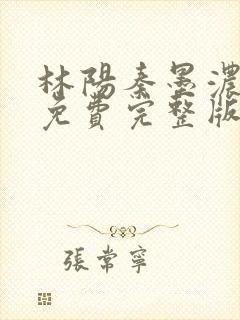 林陽秦墨濃
免費完整版
張常寧